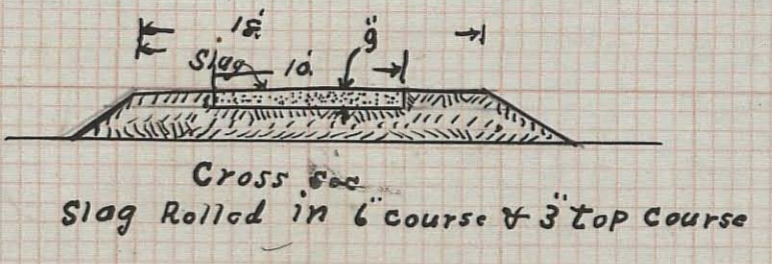 18' 9"
Slag 10'
Cross Sec
Slag Rolled in 6" course & 3" top course